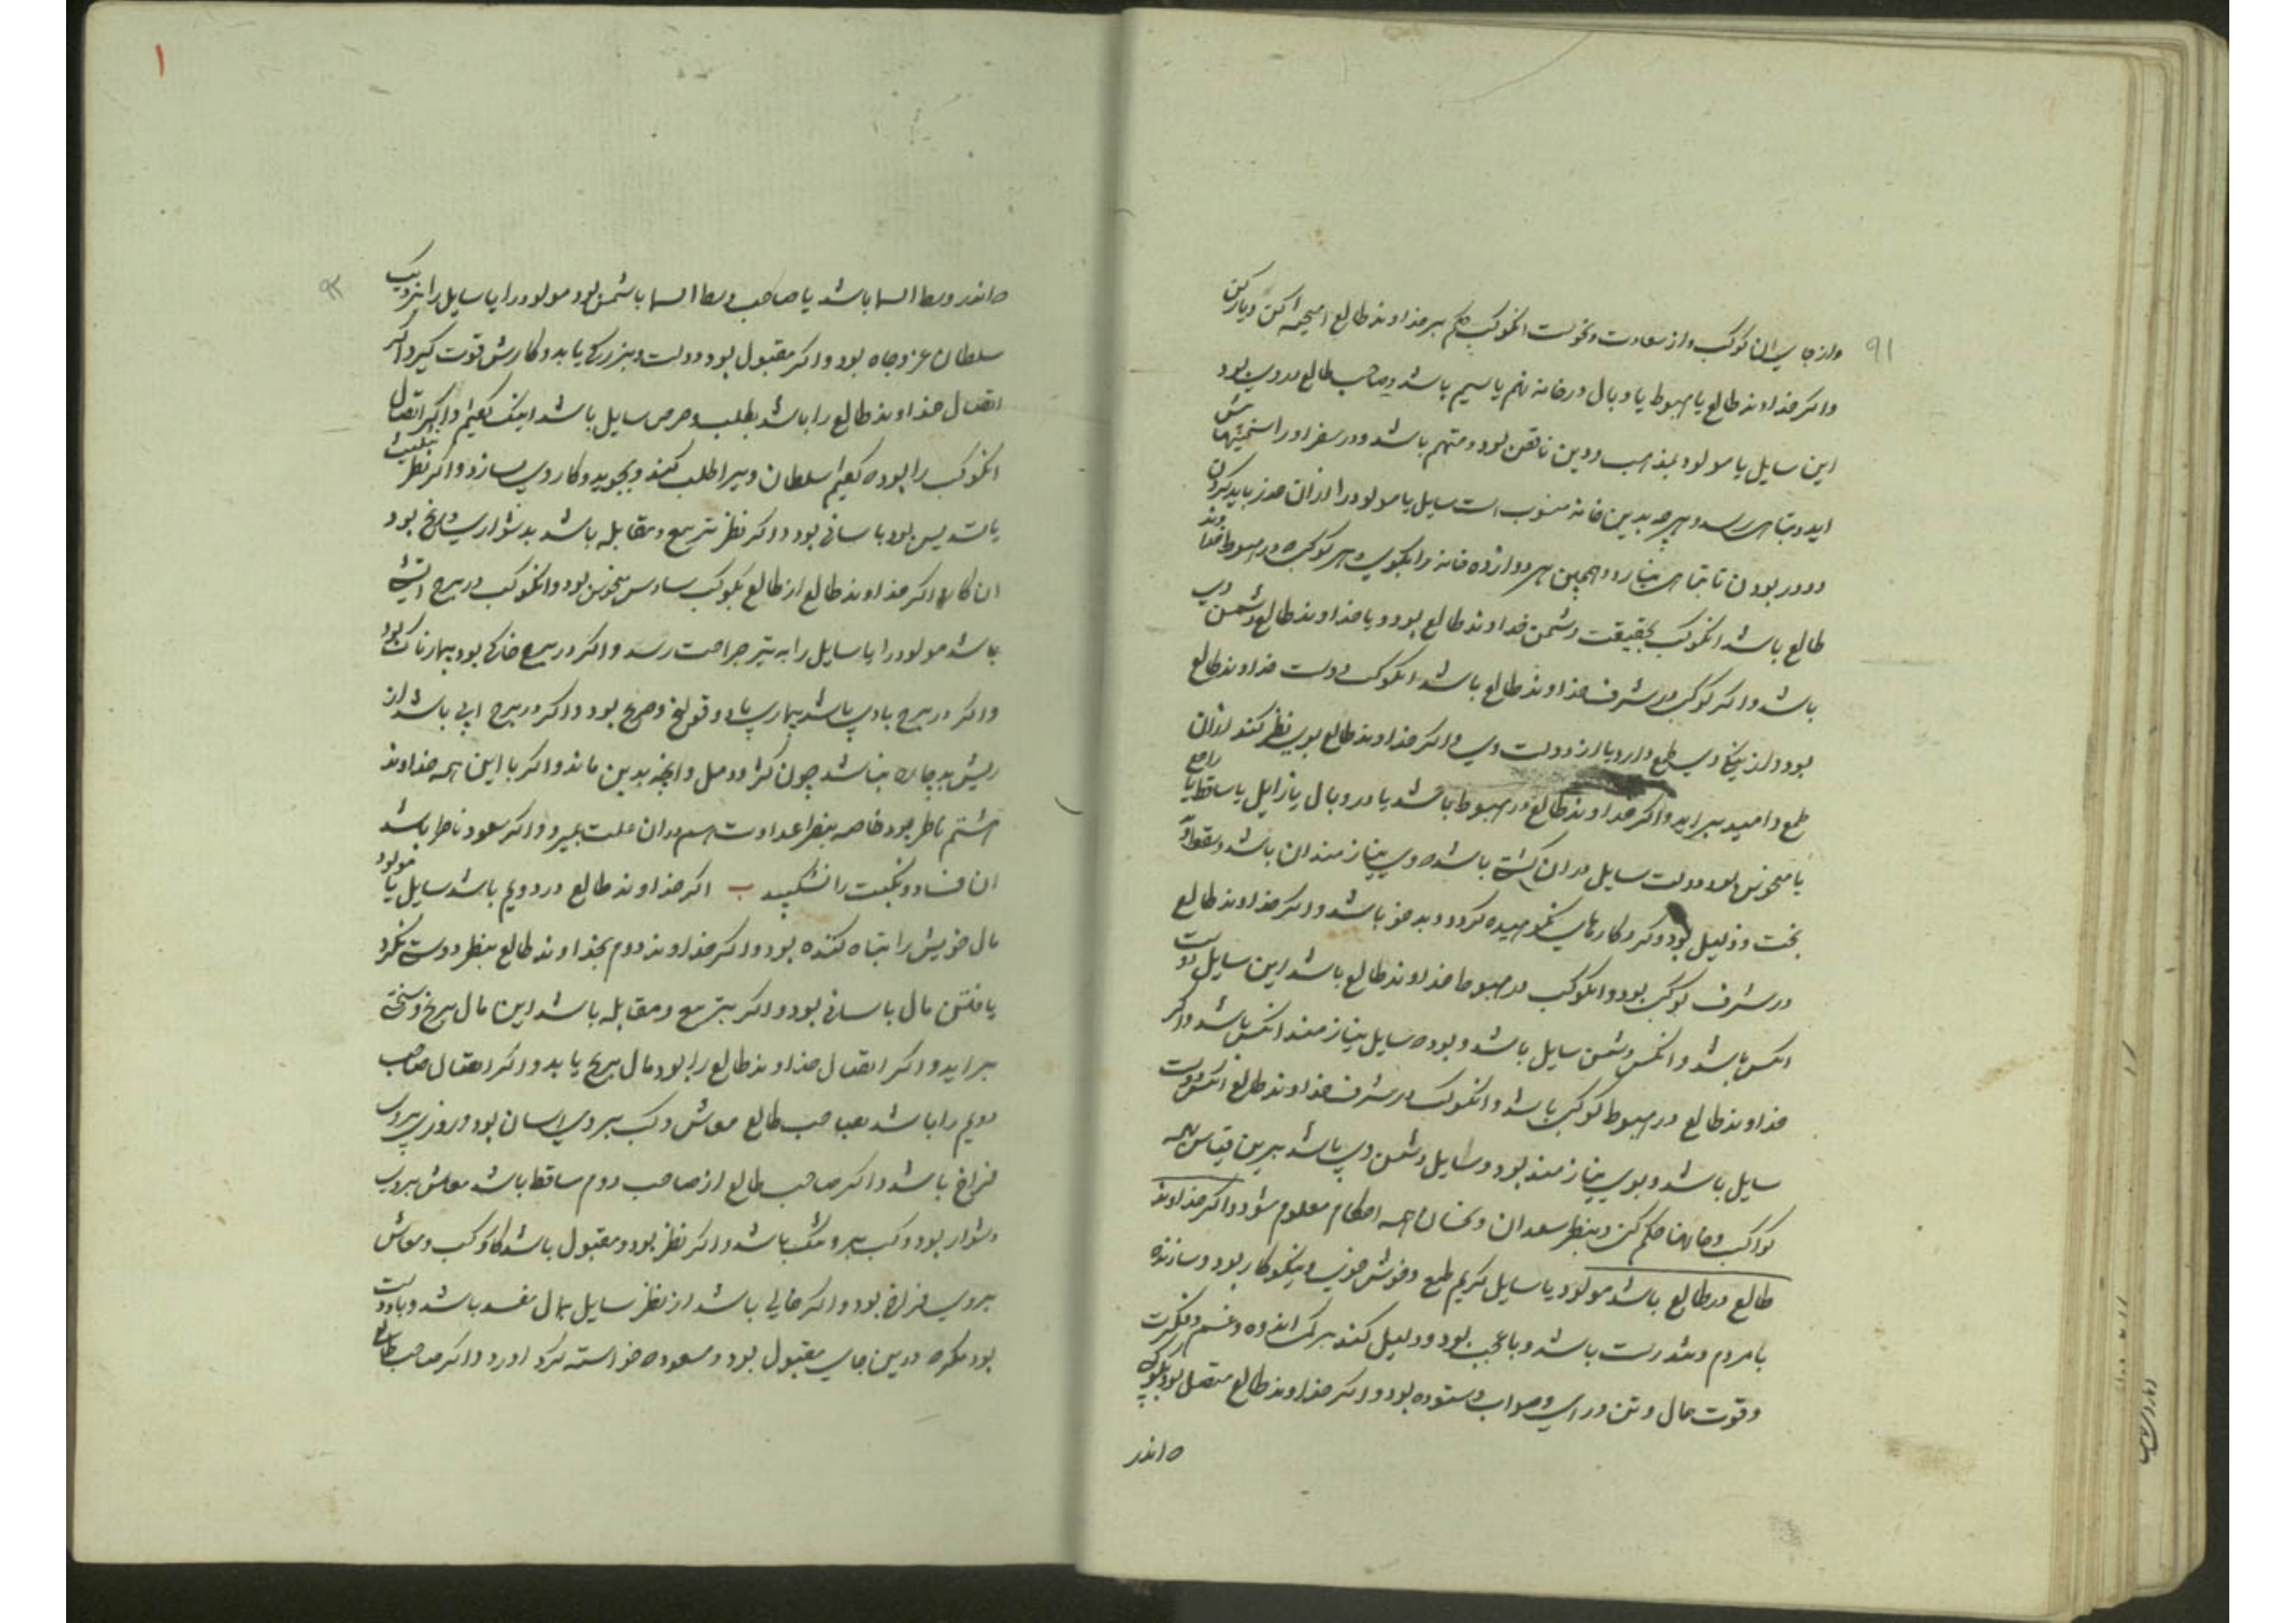 ۹۱
واز جای ان کوکب واز سعادت ونحوست انکوکب حکم بر خداوند طالع
واکر خداوند طالع با هبوط یا وبال در خانه نهم یا سیم باشد وصاحب طالع مدوی بود
این سایل یا مولود بمذهب ودین ناقص بود ومتهم باشد ودر سفر اورا
اید وتباهی رسد وهرچه بدین خانه منسوب است سایل یا مولود را از ان حذر باید کردن
ودور بودن تا تباهی نیارد وهمچنین هر دوازده خانه را بکوی وهر کوکب که در هبوط خداوند
طالع باشد انکوکب بحقیقت دشمن خداوند طالع بود ویا خداوند طالع دشمن وی
باشد واکر کوکب در شرف خداوند طالع باشد انکوکب دوست خداوند طالع
بود واز نیکی وی طمع دارد یا از دولت وی واکر خداوند طالع بوی نظر کند از ان
طمع وامید براید واکر خداوند طالع در هبوط باشد یا در وبال یا زایل یا ساقط یا راجع
یا منحوس بود دولت سایل در ان کشت باشد وی نیازمندان باشد
بخت وذلیل بود وکرد کارهای نکوهیده کردد وبدخو باشد واکر خداوند طالع
در شرف کوکب بود وانکوکب در هبوط خداوند طالع باشد این سایل دوست
انکس باشد وانکس دشمن سایل باشد وبود که سایل نیازمند انکس باشد واکر
خداوند طالع در هبوط کوکب باشد وانکوکب در شرف خداوند طالع انکس دوست
سایل باشد وبوی نیازمند بود وسایل دشمن وی باشد برین قیاس همه
کواکب وخانها حکم کن وبنظر سعدان ونحسان همه احکام معلوم شود واکر خداوند
طالع در طالع باشد مولود یا سایل کریم طبع وخوش خوی ونیکوکار بود وسازنده
با مردم وتندرست باشد وبا عجب بود ودلیل کند بر کمی اندوه وغم وفکرت
وقوت حال وتن ورای وصواب وستوده بود واکر خداوند طالع متصل بود بکوکبی
که اندر
۹۲
که اندر وسط السما باشد یا صاحب وسط السما یا شمس بود مولود را یا سایل را نزدیک
سلطان عز وجاه بود واکر مقبول بود دولت وبزرکی یابد وکارش قوت کیرد واکر
اتصال خداوند طالع را باشد بطلب وحرص سایل باشد اینک کفتیم واکر اتصال
انکوکب را بود که کفتیم سلطان ویرا طلب کند وبجوید وکار وی بسازد واکر نظر تثلیث
یا تسدیس بود باسانی بود واکر نظر تربیع ومقابله باشد بدشواری ورنج بود
ان کارها واکر خداوند طالع از طالع بکوکب سادس منحوس بود وانکوکب در برج اتشی
باشد مولود را یا سایل را به تیر جراحت رسد واکر در برج خاکی بود بیمارناک بود
واکر در برج بادی باشد بیماری بادی وقولنج وصرع بود واکر در برج ابی باشد از
ریش بد چاره نباشد چون کژ ودمل وانچه بدین ماند واکر با این همه خداوند
هشتم ناظر بود خاصه بنظر عداوت هم در ان علت بمیرد واکر سعود ناظر باشد
ان فساد ونکبت را بشکنند ب اکر خداوند طالع در دویم باشد سایل یا مولود
مال خویش را تباه کننده بود واکر خداوند دوم بخداوند طالع بنظر دوستی نکرد
یافتن مال باسانی بود واکر بتربیع ومقابله باشد این مال برنج وسختی
براید واکر اتصال خداوند طالع را بود مال برنج یابد واکر اتصال صاحب
دویم را باشد بصاحب طالع معاش وکسب بر وی اسان بود وروزی بروی
فراخ باشد واکر صاحب طالع از صاحب دوم ساقط باشد معاش بروی
دشوار بود وکسب بر وی تنک باشد واکر نظر بود ومقبول باشد کار وکسب ومعاش
بروی فراخ بود واکر خالی باشد از نظر سایل بمال مفسد باشد
بود مکر که درین جای مقبول بود ومسعود که خواسته کرد اورد واکر صاحب طالع